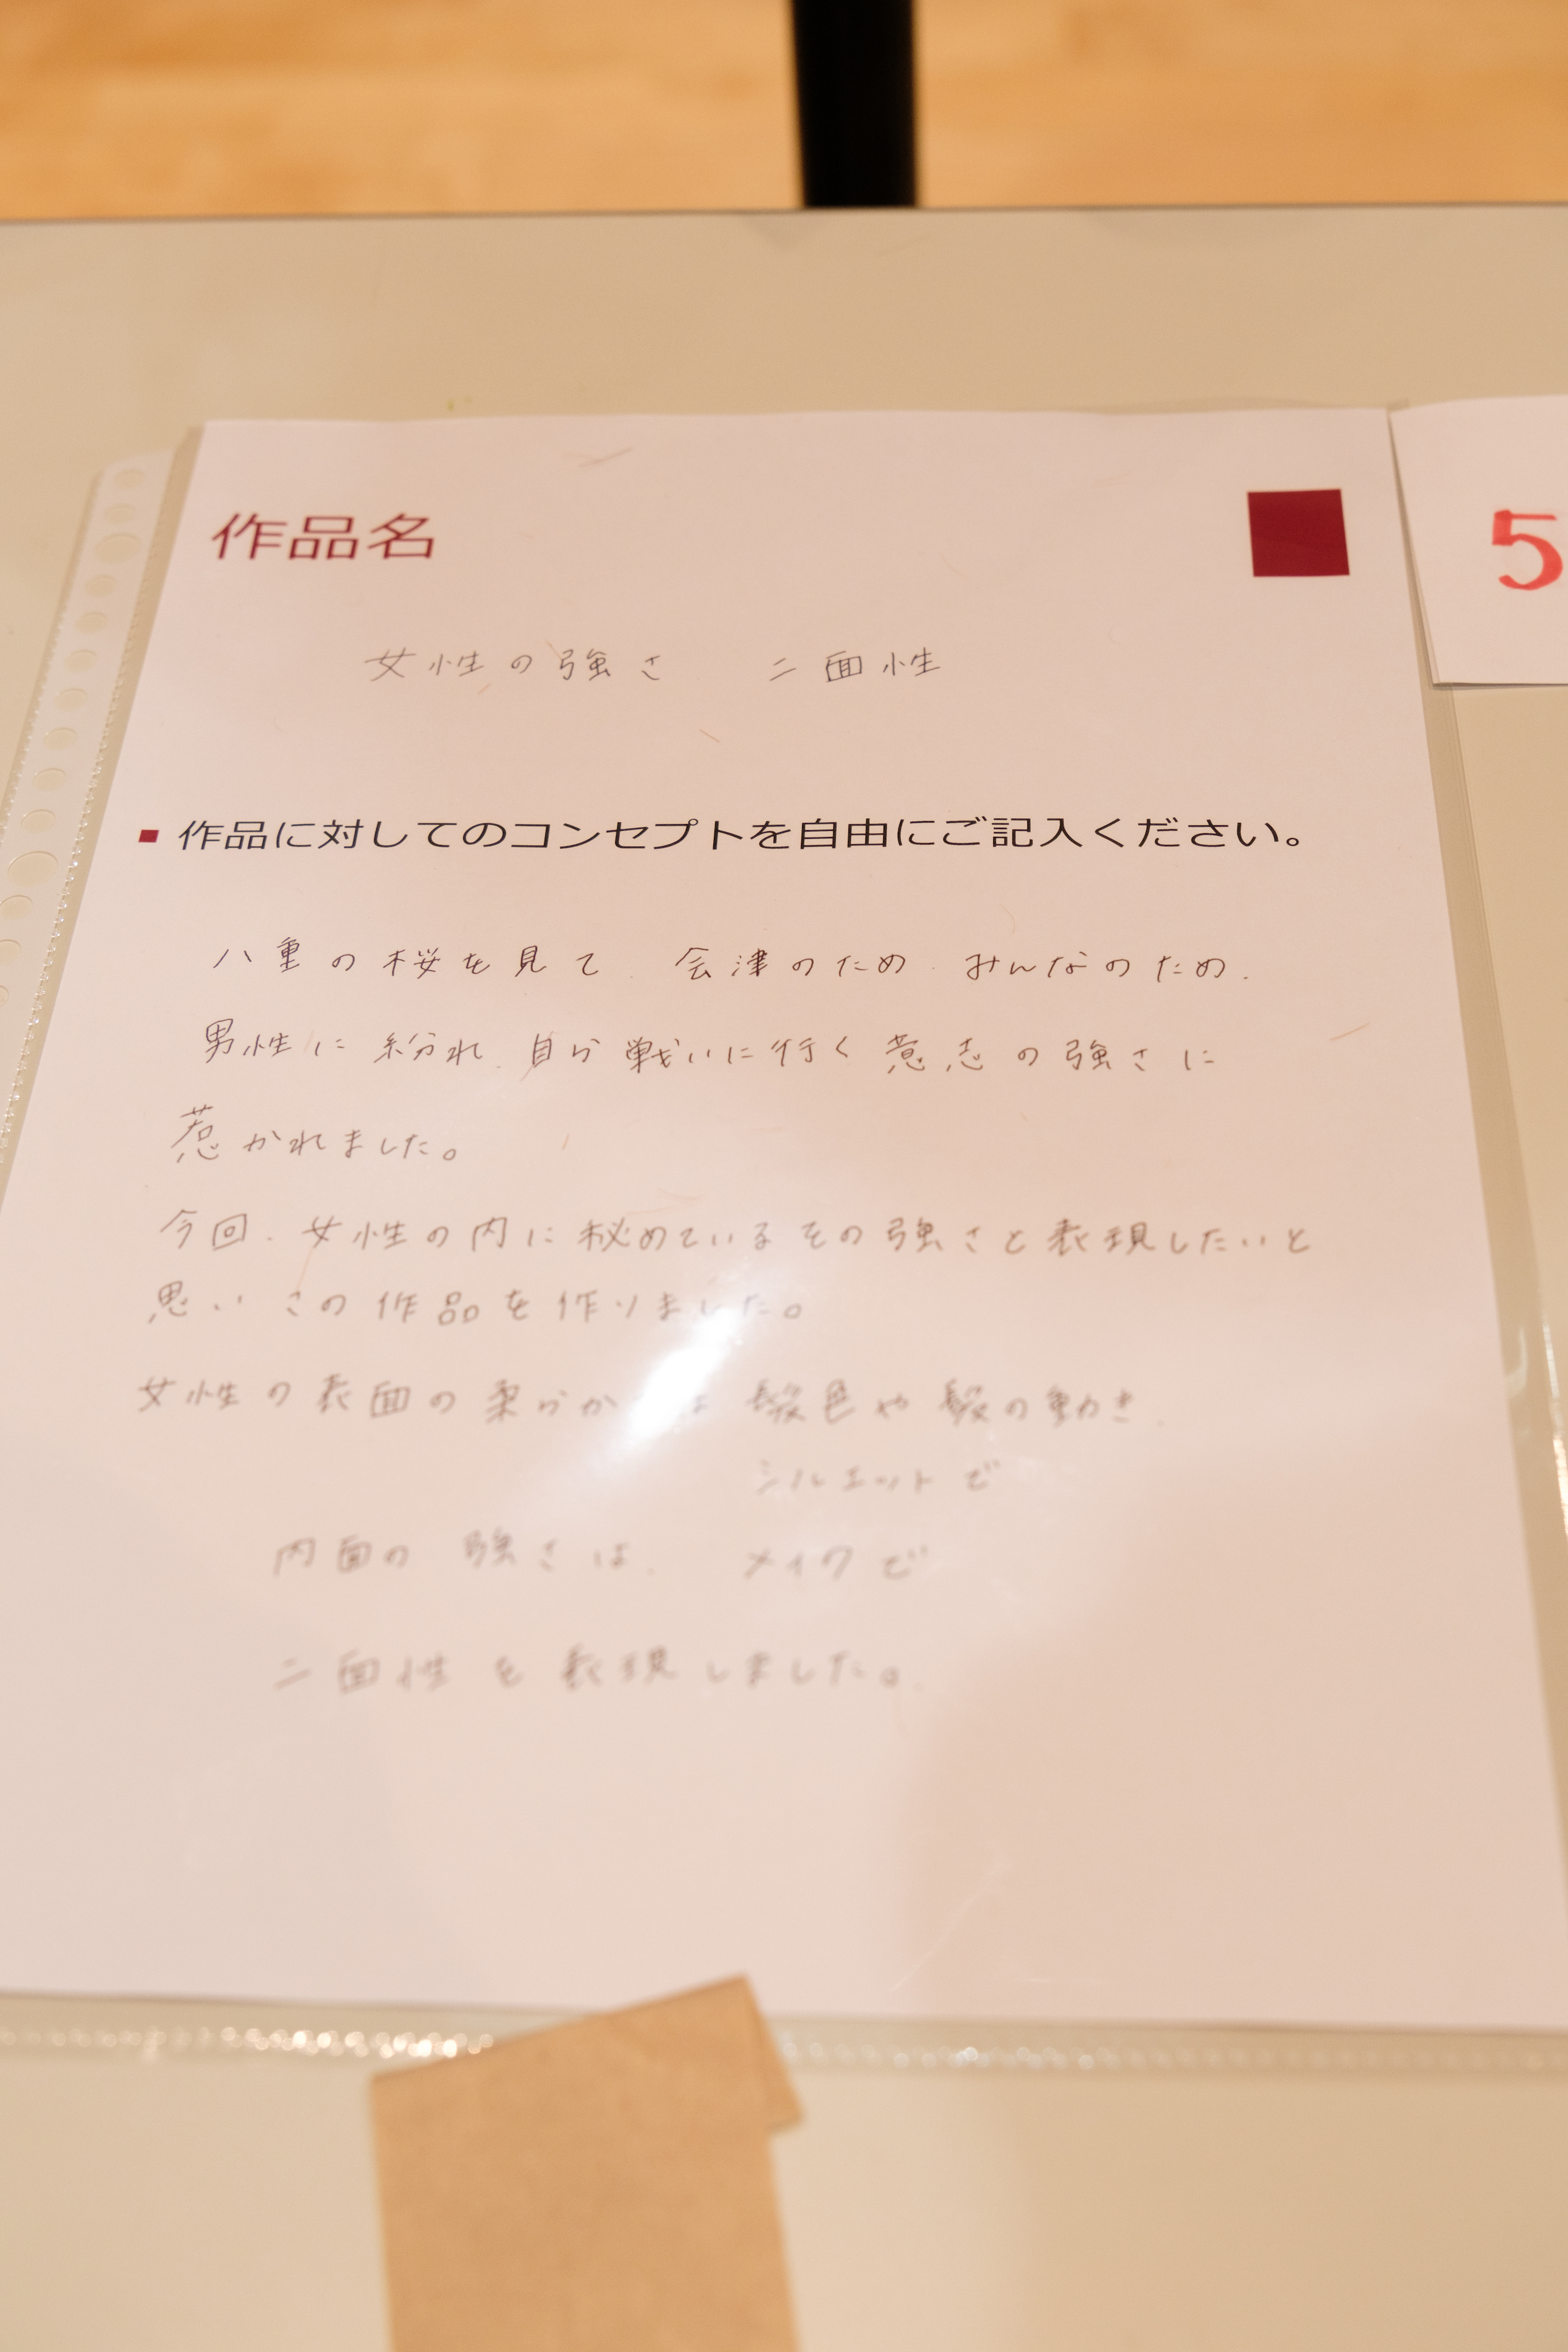 作品名
5
女性の強さ 二面性
作品に対してのコンセプトを自由にご記入ください。
八重の桜を見て、会津のため、みんなのため、
男性に紛れ、自ら戦いに行く意志の強さに
惹かれました。
今回、女性の内に秘めているその強さと表現したいと
思い この作品を作りました。
女性の表面の柔らか は 髪色や髪の動き、
シルエットで
内面の 強さは、 メイクで
二面性を表現しました。